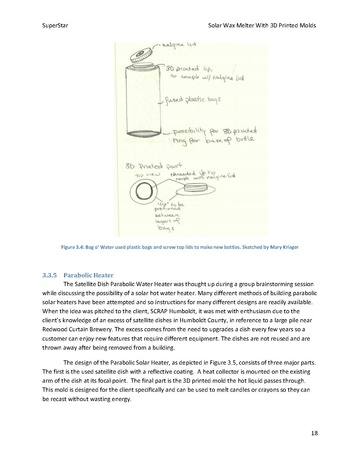 SuperStar Solar Wax Melter With 3D Printed Molds
nalgine lid
3D printed lip
to couple w/ nalgine lid
fused plastic bags
possibility for 3D printed
ring for base of bottle
3D Printed part
top view threaded lip to
couple with nalgine lid
"lip" to be
between
layers of
bags
Figure 3.4: Bag o' Water used plastic bags and screw top lids to make new bottles. Sketched by Mary Krieger
3.3.5 Parabolic Heater
The Satellite Dish Parabolic Water Heater was thought up during a group brainstorming session
while discussing the possibility of a solar hot water heater. Many different methods of building parabolic
solar heaters have been attempted and so instructions for many different designs are readily available.
When the idea was pitched to the client, SCRAP Humboldt, it was met with enthusiasm due to the
client's knowledge of an excess of satellite dishes in Humboldt County, in reference to a large pile near
Redwood Curtain Brewery. The excess comes from the need to upgrades a dish every few years so a
customer can enjoy new features that require different equipment. The dishes are not reused and are
thrown away after being removed from a building.
The design of the Parabolic Solar Heater, as depicted in Figure 3.5, consists of three major parts.
The first is the used satellite dish with a reflective coating. A heat collector is mounted on the existing
arm of the dish at its focal point. The final part is the 3D printed mold the hot liquid passes through.
This mold is designed for the client specifically and can be used to melt candles or crayons so they can
be recast without wasting energy.
18